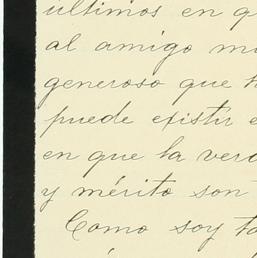 ultimos en q
al amigo m
generoso que h
puede existir e
en que la verd
y mérito son
Como soy ta